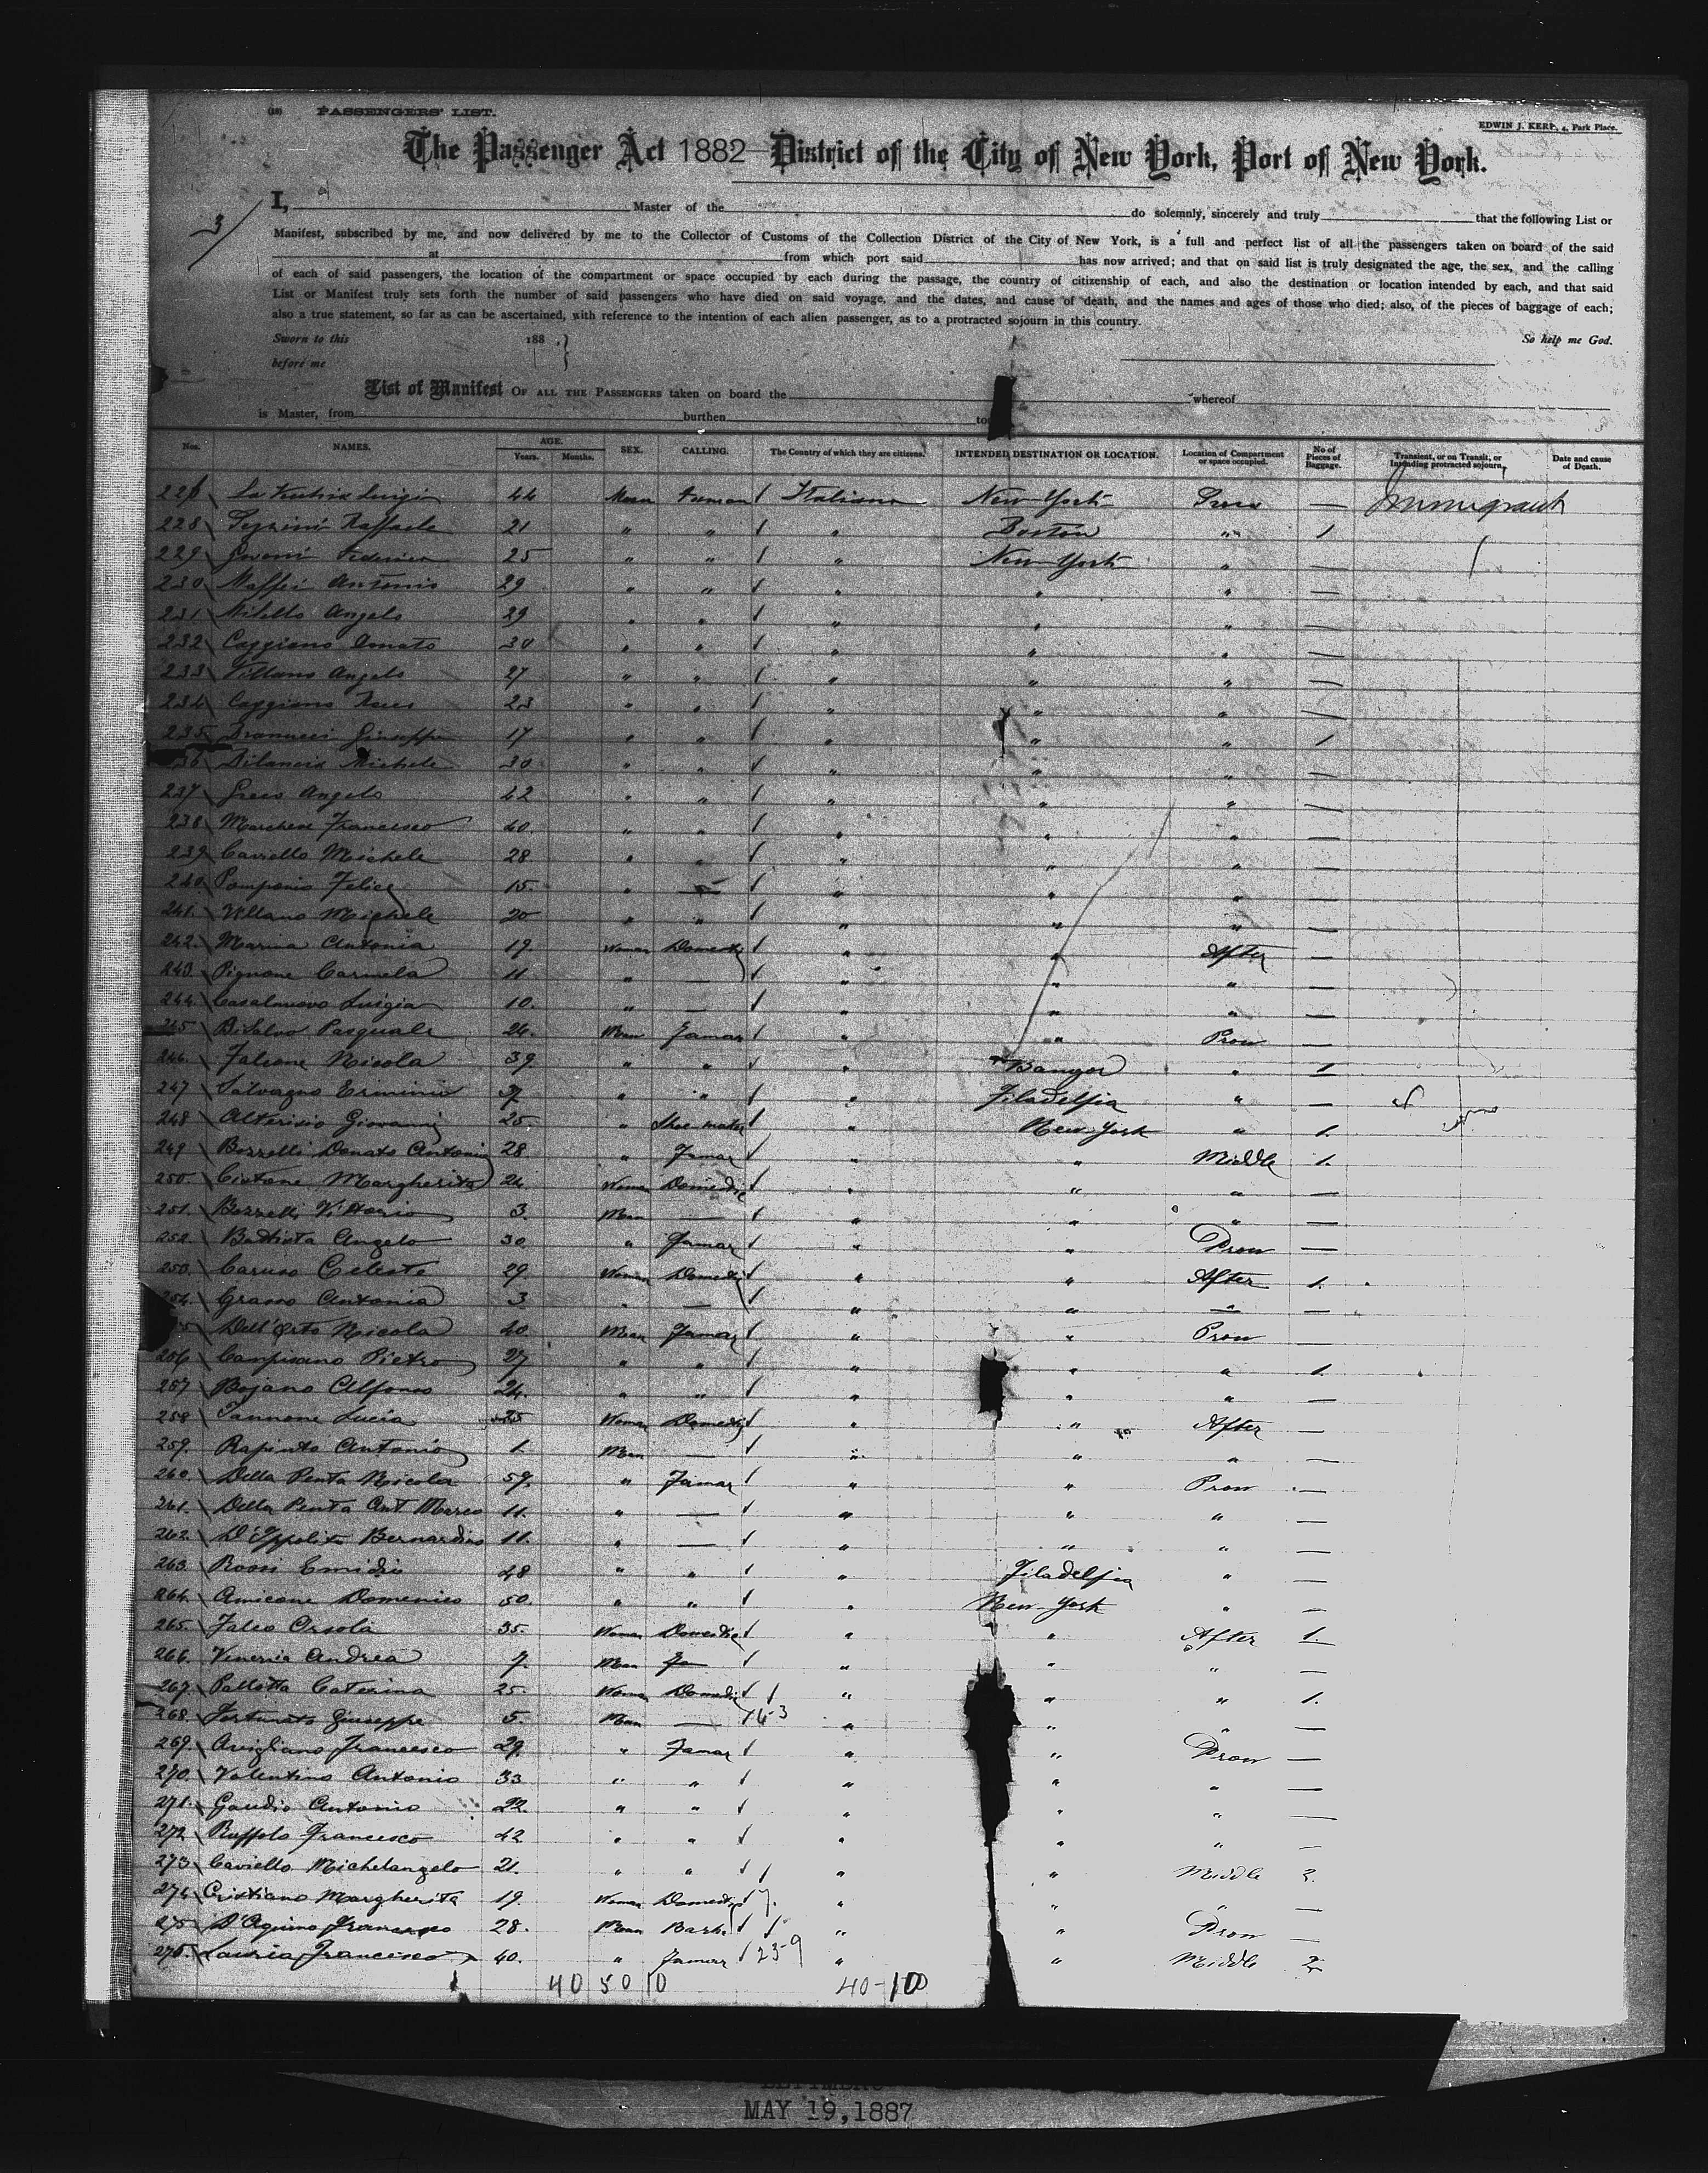 (18) PASSENGERS' LIST.
EDWIN J. KERR, 4, Park Place.
The Passenger Act 1882 District of the City of New York, Port of New York.
3
I, Master of the do solemnly, sincerely and truly that the following List or
Manifest, subscribed by me, and now delivered by me to the Collector of Customs of the Collection District of the City of New York, is a full and perfect list of all the passengers taken on board of the said
at from which port said has now arrived; and that on said list is truly designated the age, the sex, and the calling
of each of said passengers, the location of the compartment or space occupied by each during the passage, the country of citizenship of each, and also the destination or location intended by each, and that said
List or Manifest truly sets forth the number of said passengers who have died on said voyage, and the dates, and cause of death, and the names and ages of those who died; also, of the pieces of baggage of each;
also a true statement, so far as can be ascertained, with reference to the intention of each alien passenger, as to a protracted sojourn in this country.
Sworn to this 188 So help me God.
before me
List of Manifest OF ALL THE PASSENGERS taken on board the whereof
is Master, from burthen to
Nos. NAMES. AGE. Years. Months. SEX. CALLING. The Country of which they are citizens. INTENDED DESTINATION OR LOCATION. Location of Compartment or space occupied. No of Pieces of Baggage. Transient, or on Transit, or Intending protracted sojourn. Date and cause of Death.
Luigi 44 Man Italiana New-York — Immigrant
228 Raffaele 21 " " " Boston " 1
229 25 " " " New-York " —
230 Maffei Antonio 29 " " " " " —
231 Milello Angelo 29 " " " " " —
232 Caggiano Donato 30 " " " " " —
233 Villano Angelo 27 " " " " " —
234 Caggiano 23 " " " " " —
235 Giuseppe 17 " " " " " 1
36 Michele 30 " " " " " —
237 Greco Angelo 42 " " " " " —
238 Francesco 40. " " " " " —
239 Caviello Michele 28 " " " " " —
240. Pomponio Felice 15. " — " " " —
241. Villano Michele 20 " " " " " —
242. Marina Antonia 19. Woman Domestic " " After —
243. Pignone Carmela 11 " — " " " —
244. Casalanovo Luigia 10. " — " " " —
245 DiSalvo Pasquale 24. Man Farmar " " Prow —
246. Falcone Nicola 39. " " " Bangor " 1
247 Salvagno " " " Filadelfia " —
248 Alterisio Giovanni 25. " Shoe maker " New-York " 1.
249 Bozzelli Donato Antonio 28 " Farmar " " Middle 1.
250 Margherita 24. Woman Domestic " " " —
251. Bozzelli Vittorio 3. Man — " " " —
252. Battista Angelo 30. " Farmar " " Prow —
253. Caruso Celeste 29. Woman Domestic " " After 1.
254. Grasso Antonia 3. " — " " " —
Dell'Orto Nicola 40 Man Farmar " " Prow
256 Campisano Pietro 27 " " " " " 1.
257 Bojano Alfonso 24. " " " " " —
258 Iannone Lucia 25 Woman Domestic " " After —
259. Rapinto Antonio 1. Man — " " " —
260. Della Penta Nicola 59. " Farmar " " Prow —
261. Della Penta Ant. Marco 11. " — " " " —
262. D'Ippolito Bernardino 11. " — " " " —
263. Rossi Emidio 48 " " " Filadelfia " —
264. Amicone Domenico 50. " " " New-York " —
265. Falco Orsola 35. Woman Domestic " " After 1.
266. Veneria Andrea 7. Man " " " —
267. Pallotta Caterina 25. Woman Domestic " " " 1.
268. Fortunato Giuseppe 5. Man — " " " —
269. Avigliano Francesco 29. " Farmar " " Prow —
270. Valentino Antonio 33 " " " " " —
271. Gaudio Antonio 22. " " " " " —
272. Ruffolo Francesco 42 " " " " " —
273. Caviello Michelangelo 21. " " " " Middle 2.
274. Cristiano Margherita 19. Woman Domestic " " " —
275 D'Aquino Francesco 28. Man " " Prow —
276. Lauria Francesco 40. " Farmar 23-9 " " Middle 2
40 50 10 40-10
MAY 19,1887